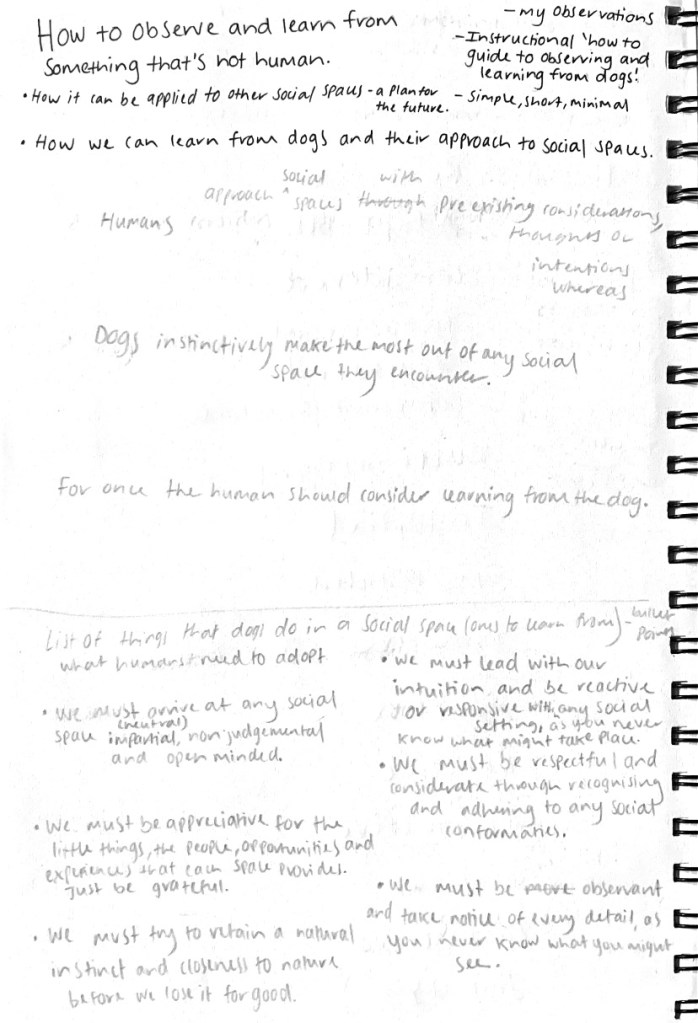 How to observe and learn from
something that's not human.
- My observations
- Instructional 'how to
guide to observing and
learning from dogs!'
- Simple, short, minimal
• How it can be applied to other social spaces - a plan for
the future.
• How we can learn from dogs and their approach to social spaces.
Humans approach ^social spaces through with pre existing considerations,
thoughts or
intentions
whereas
Dogs instinctively make the most out of any social
space they encounter.
For once the human should consider learning from the dog.
List of things that dogs do in a social space (ones to learn from) - bullet
points
what humans need to adopt
• We must arrive at any social
(neutral)
space impartial, non judgemental
and open minded.
• We must be appreciative for the
little things, the people, opportunities and
experiences that each space provides.
Just be grateful.
• We must try to retain a natural
instinct and closeness to nature
before we lose it for good.
• We must lead with our
intuition and be reactive
or responsive with any social
setting, as you never
know what might take place.
• We must be respectful and
considerate through recognising
and adhering to any social
conformaties.
• We must be more observant
and take notice of every detail, as
you never know what you might
see.